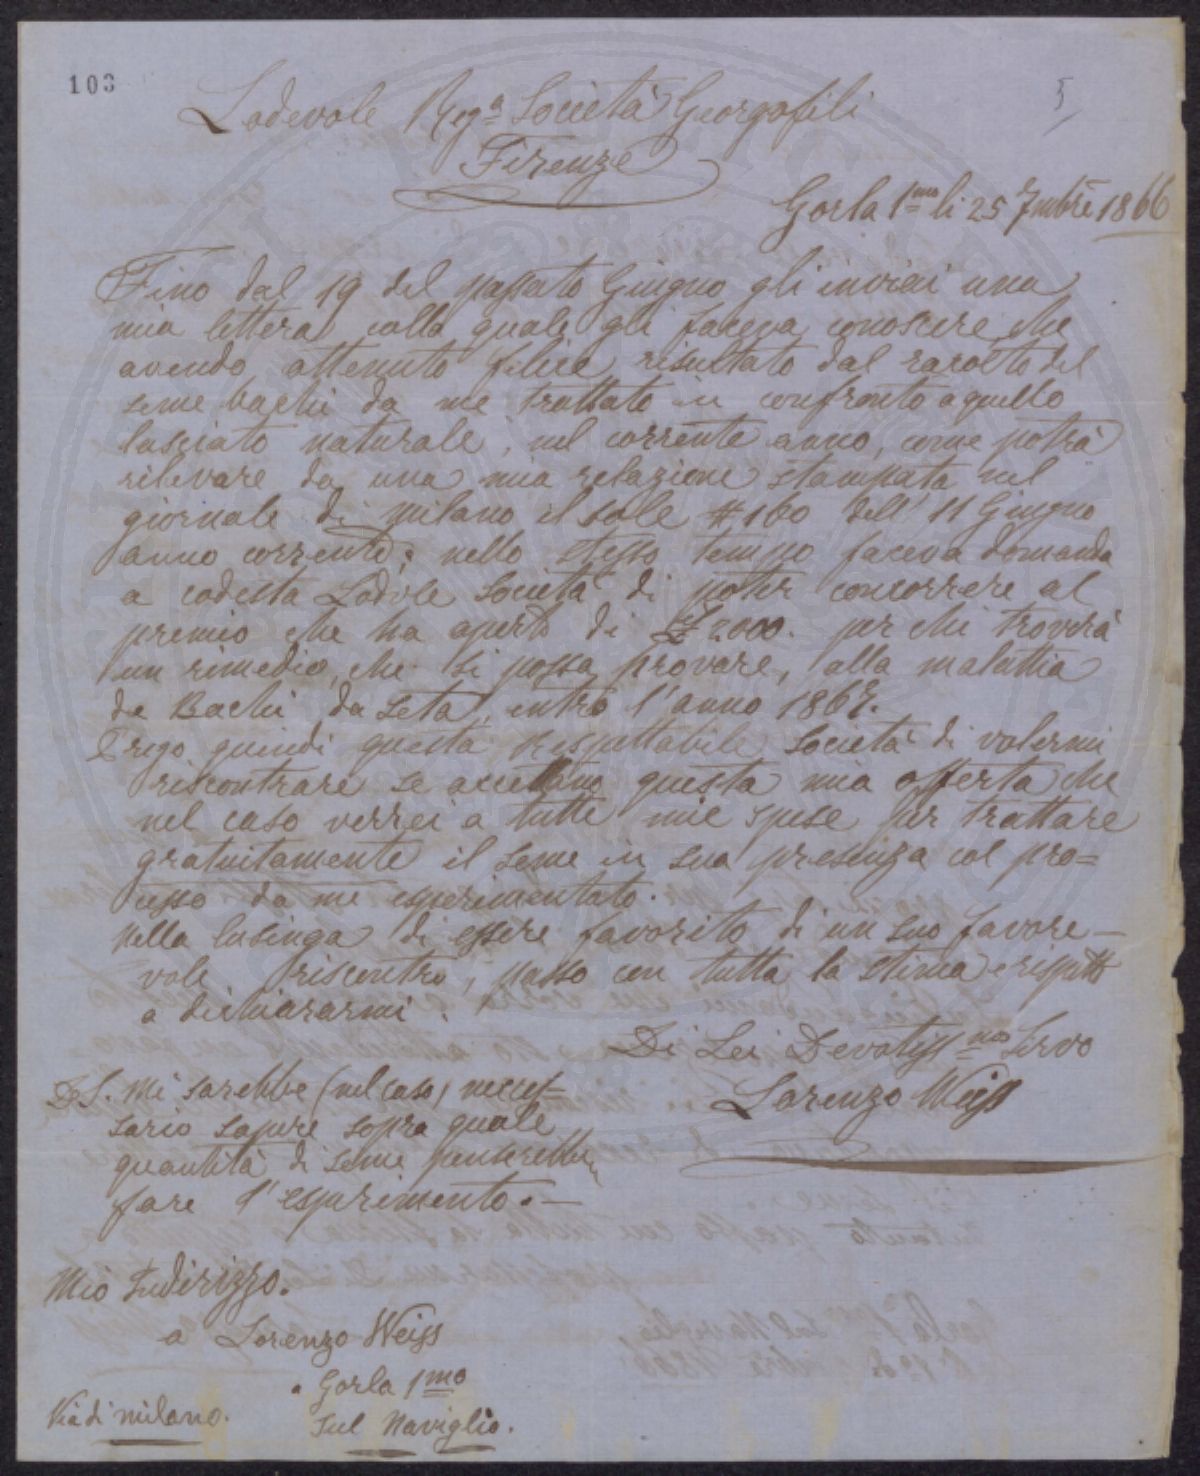 103
5
Lodevole Reg.a Società Georgofili
Firenze
Gorla 1mo li 25 7mbre 1866
Fino dal 19 del passato Giugno gli inviai una
mia lettera colla quale gli faceva conoscere che
avendo ottenuto felice risultato dal racolto del
seme bachi da me trattato in confronto a quello
lasciato naturale, nel corrente anno, come potrà
rilevare da una mia relazione stampata nel
giornale di Milano il Sole # 160 dell' 11 Giugno
anno corrente; nello stesso tempo faceva domanda
a codesta Lodole Società di poter concorrere al
premio che ha aperto di £ 2000. per chi troverà
un rimedio, che si possa provare, alla malattia
de Bachi da seta, entro l'anno 1867.
Prego quindi questa Rispettabile Società di volermi
riscontrare se accettano questa mia offerta che
nel caso verrei a tutte mie spese per trattare
gratuitamente il seme in sua presenza col pro=
cesso da me esperimentato.
Nella lusinga di essere favorito di un suo favore-
vole riscontro, passo con tutta la stima e rispetto
a dichiararmi.
Di Lei Devotissmo Servo
Lorenzo Weiss
P.S. Mi sarebbe (nel caso) neces-
sario sapere sopra quale
quantità di seme penserebbe
fare l'esperimento.-
Mio Indirizzo.
a Lorenzo Weiss
Gorla 1mo
Via di Milano.
Sul Naviglio.